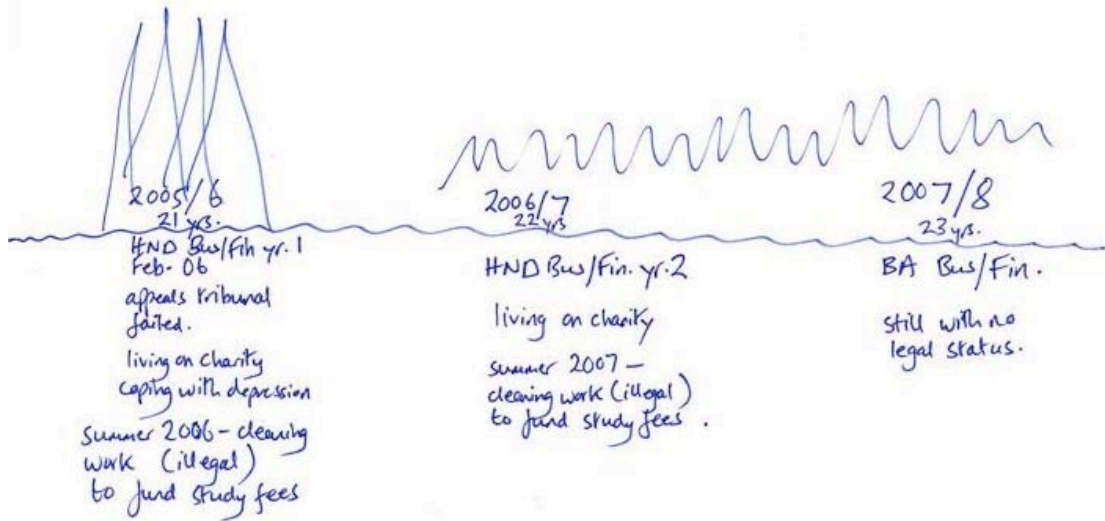 2005/6
21 yrs.
HND Bus/Fin yr. 1
Feb. 06
appeals tribunal
failed.
living on charity
coping with depression
summer 2006 - cleaning
work (illegal)
to fund study fees
2006/7
22 yrs
HND Bus/Fin. yr. 2
living on charity
summer 2007 -
cleaning work (illegal)
to fund study fees.
2007/8
23 yrs.
BA Bus/Fin.
still with no
legal status.